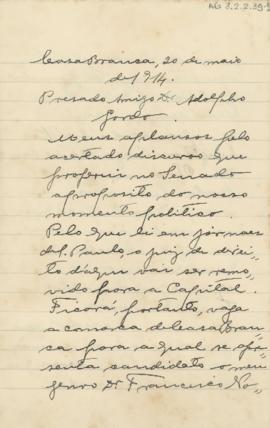 AG 3.2.2.39-1
Casa Branca, 20 de maio
de 1914.
Presado Amigo Dr. Adolpho
Gordo.
Meus aplausos pelo
acertado discurso que
proferiu no Senado
a proposito do nosso
momento politico.
Pelo que li em jornaes
de S. Paulo, o juiz de direi-
to d'aqui vai ser remo-
vido para a Capital.
Ficará, portanto, vaga
a comarca de Casa Bran-
ca para a qual se apre-
senta candidato o meu
genro Dr. Francisco No-